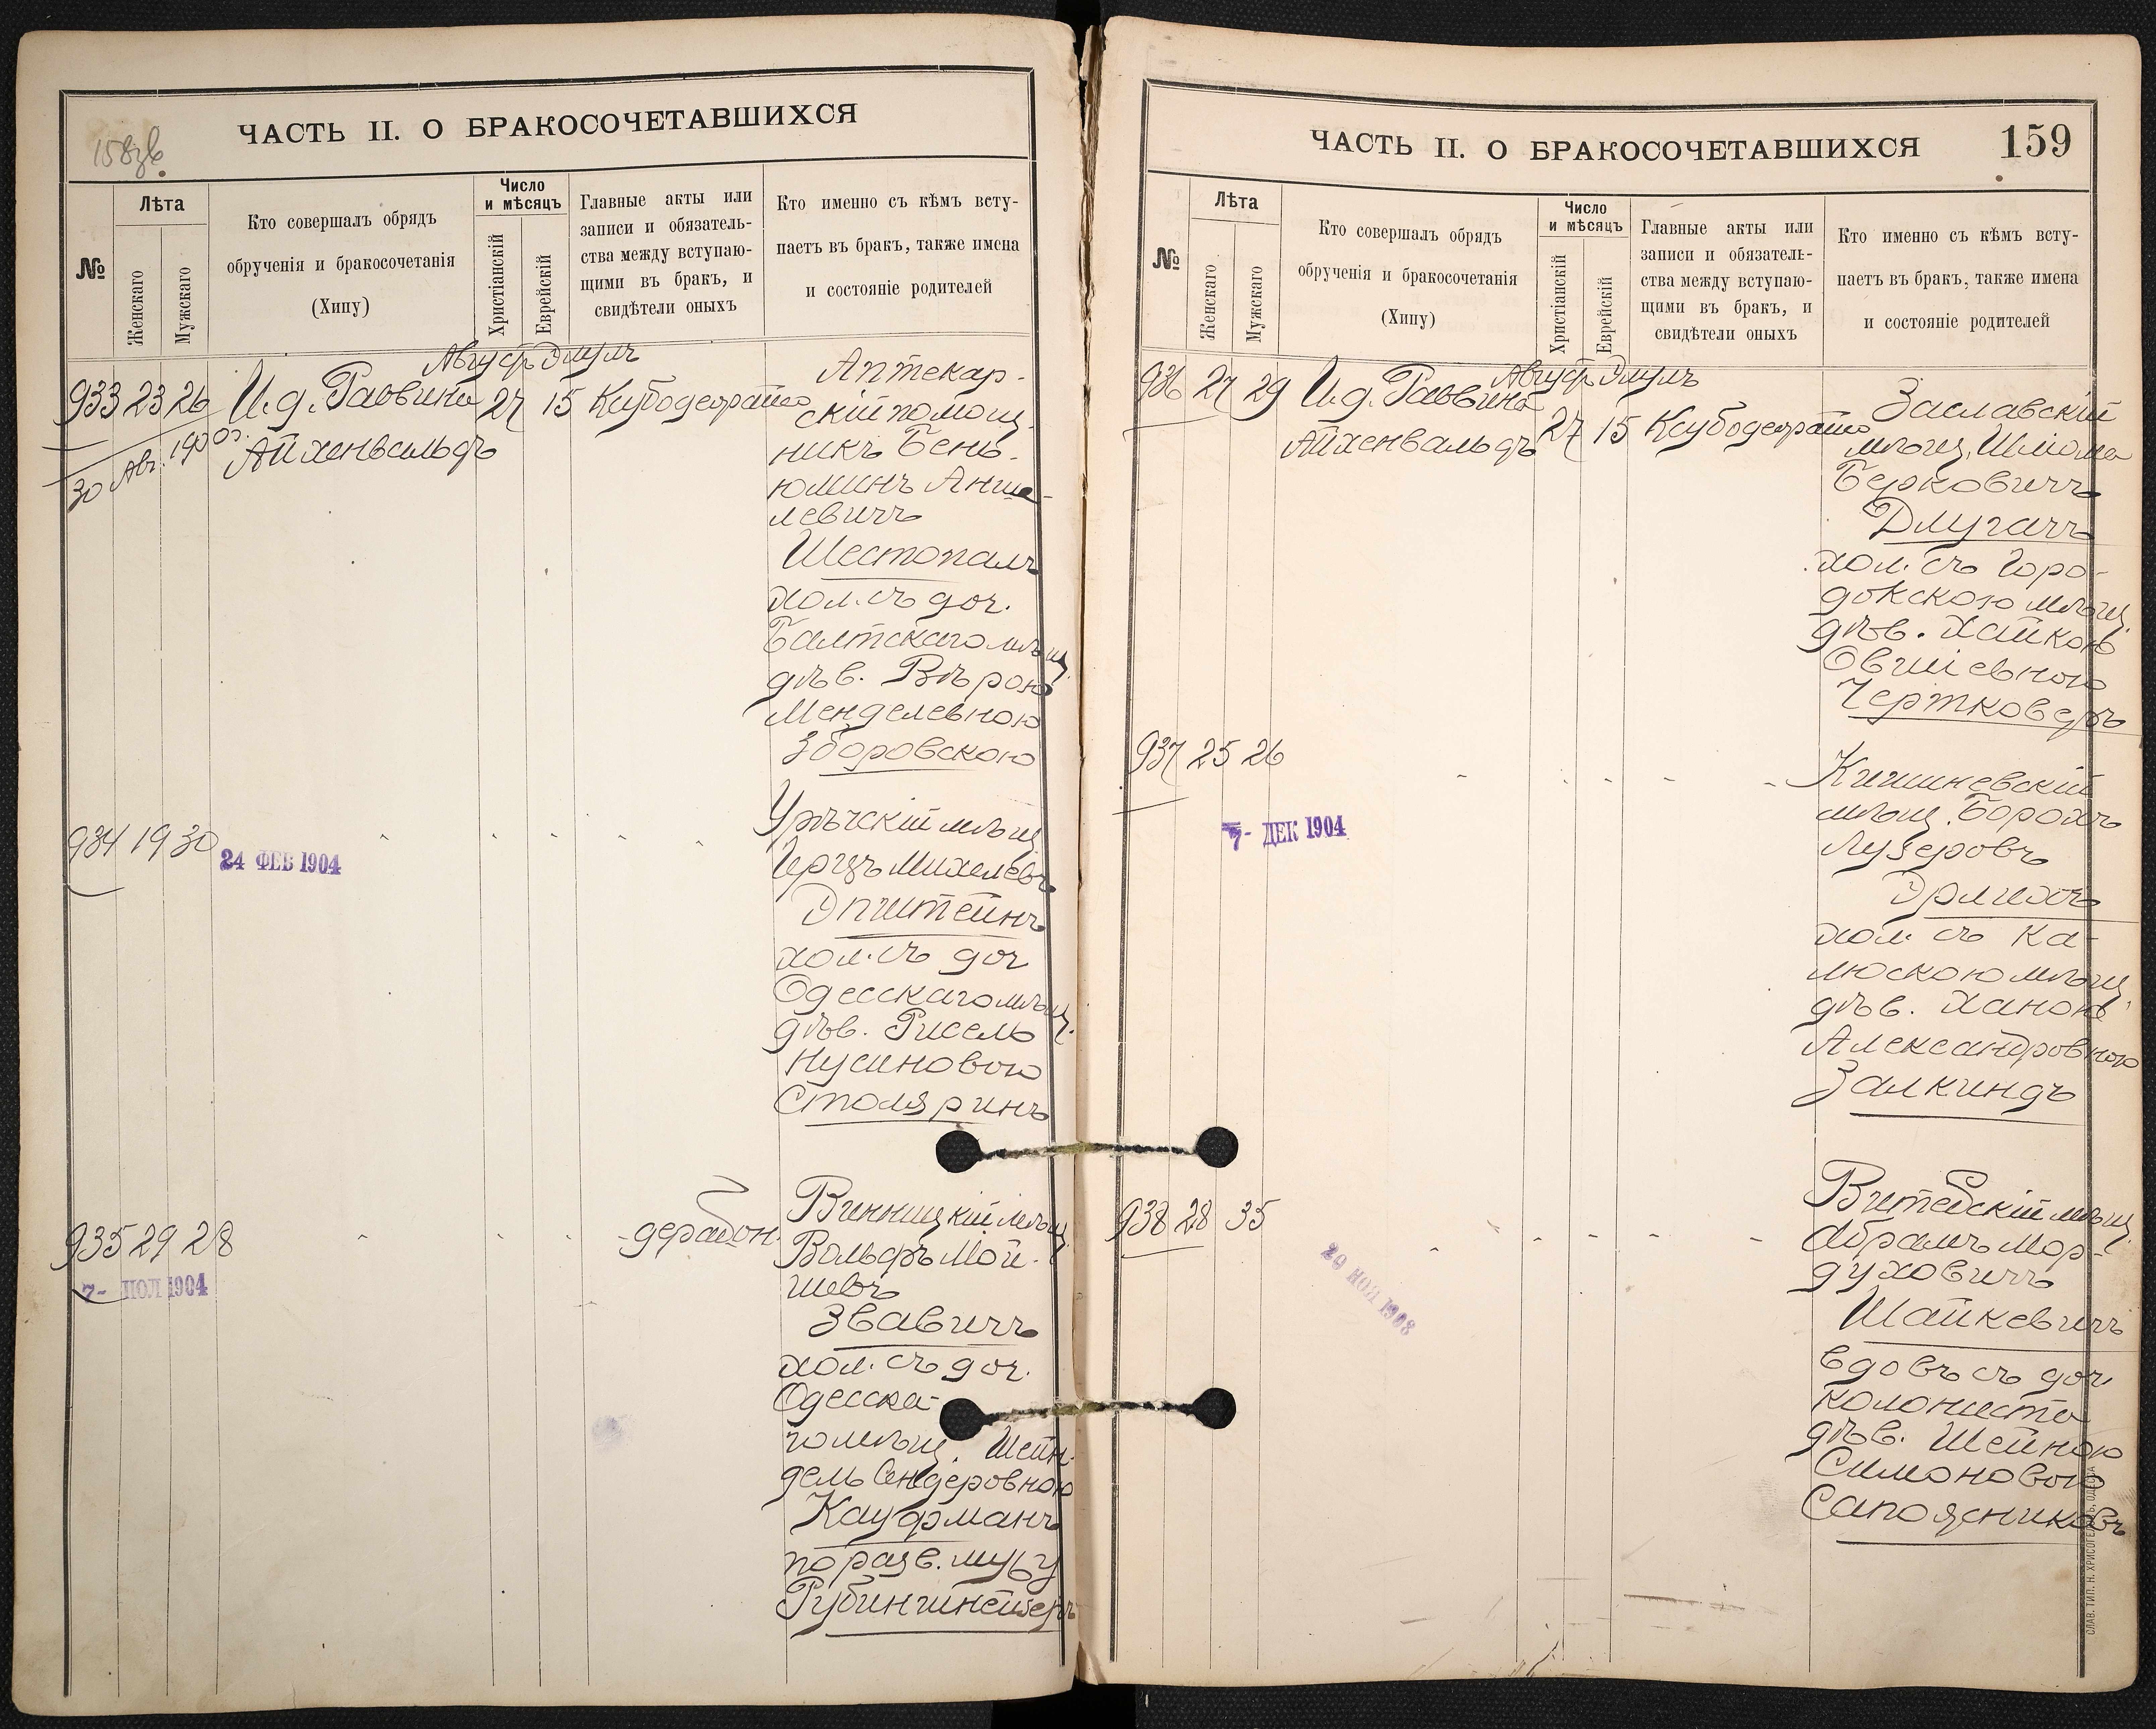 158об.
ЧАСТЬ II. О БРАКОСОЧЕТАВШИХСЯ
№
Лѣта
Женскаго
Мужскаго
Кто совершалъ обрядъ
обрученія и бракосочетанія
(Хипу)
Число
и мѣсяцъ
Христіанскій
Еврейскій
Главные акты или
записи и обязатель-
ства между вступаю-
щими въ бракъ, и
свидѣтели оныхъ
Кто именно съ кѣмъ всту-
паетъ въ бракъ, также имена
и состояніе родителей
Август Элулъ
933 23 26 И.д. Раввина 27 15
Айхенвальдъ
30 Авг.
Аптекар-
скій помощ.
никъ Бень-
юминъ Анше-
левичъ
Шестопалъ
хол. съ доч.
Балтскаго мѣщ.
дѣв. Вѣрою
Менделевною
Зборовскою
934 19 30
24 ФЕВ 1904
мѣщ.
Герцъ Михелевъ
Эпштейнъ
хол. съ доч
Одесскаго мѣщ.
дѣв. Рисель
Нусиновою
Столяринъ
935 29 28
7- 1904
Винницкій мѣщ.
Вольфъ Мой-
шевъ
Звавичъ
хол. съ доч.
Одесска-
го мѣщ. Шейн-
дель Сендеровною
Кауфманъ
по разв. мужу
ЧАСТЬ II. О БРАКОСОЧЕТАВШИХСЯ 159
№
Лѣта
Женскаго
Мужскаго
Кто совершалъ обрядъ
обрученія и бракосочетанія
(Хипу)
Число
и мѣсяцъ
Христіанскій
Еврейскій
Главные акты или
записи и обязатель-
ства между вступаю-
щими въ бракъ, и
свидѣтели оныхъ
Кто именно съ кѣмъ всту-
паетъ въ бракъ, также имена
и состояніе родителей
Август Элулъ
936 27 29 И.д. Раввина 27 15
Айхенвальдъ
Заславскій
мѣщ. Шліома
Берковичъ
Длугачъ
хол. съ Горо-
докскою мѣщ.
дѣв. Хайкою
Овшіевною
Чертковеръ
937 25 26
7- ДЕК 1904
Кишиневскій
мѣщ. Борохъ
Лузеровъ
Эрлихъ
хол. съ Ка-
люскою мѣщ.
дѣв. Ханою
Александровною
Залкиндъ
938 28 35
Витебскій мѣщ.
Абрамъ Мор-
духовичъ
Шайкевичъ
вдовъ съ доч
колониста
дѣв. Шейною
Симоновою
Сапожниковъ
СЛАВ. ТИП. Н. ХРИСОГЕЛОСЪ, ОДЕССА